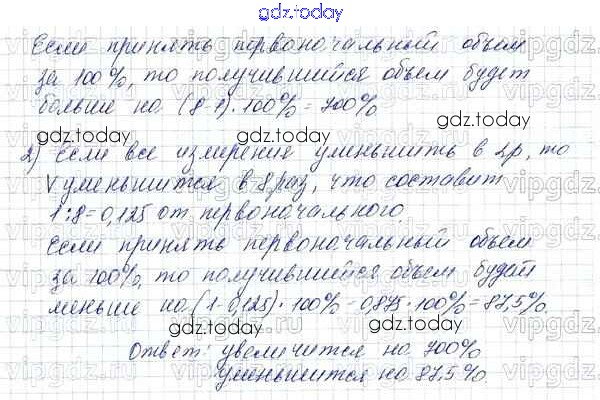 gdz.today
Если принять первоначальный объем
за 100%, то получившийся объем будет
больше на (8-1)·100%=700%
gdz.today gdz.today
2) Если все измерения уменьшить в 2р, то
V уменьшится в 8 раз, что составит
1:8=0,125 от первоначального.
gdz.today gdz.today
Если принять первоначальный объем
за 100%, то получившийся объем будет
меньше на (1-0,125)·100%=0,875·100%=87,5%
gdz.today gdz.today
Ответ: увеличится на 700%
уменьшится на 87,5%.